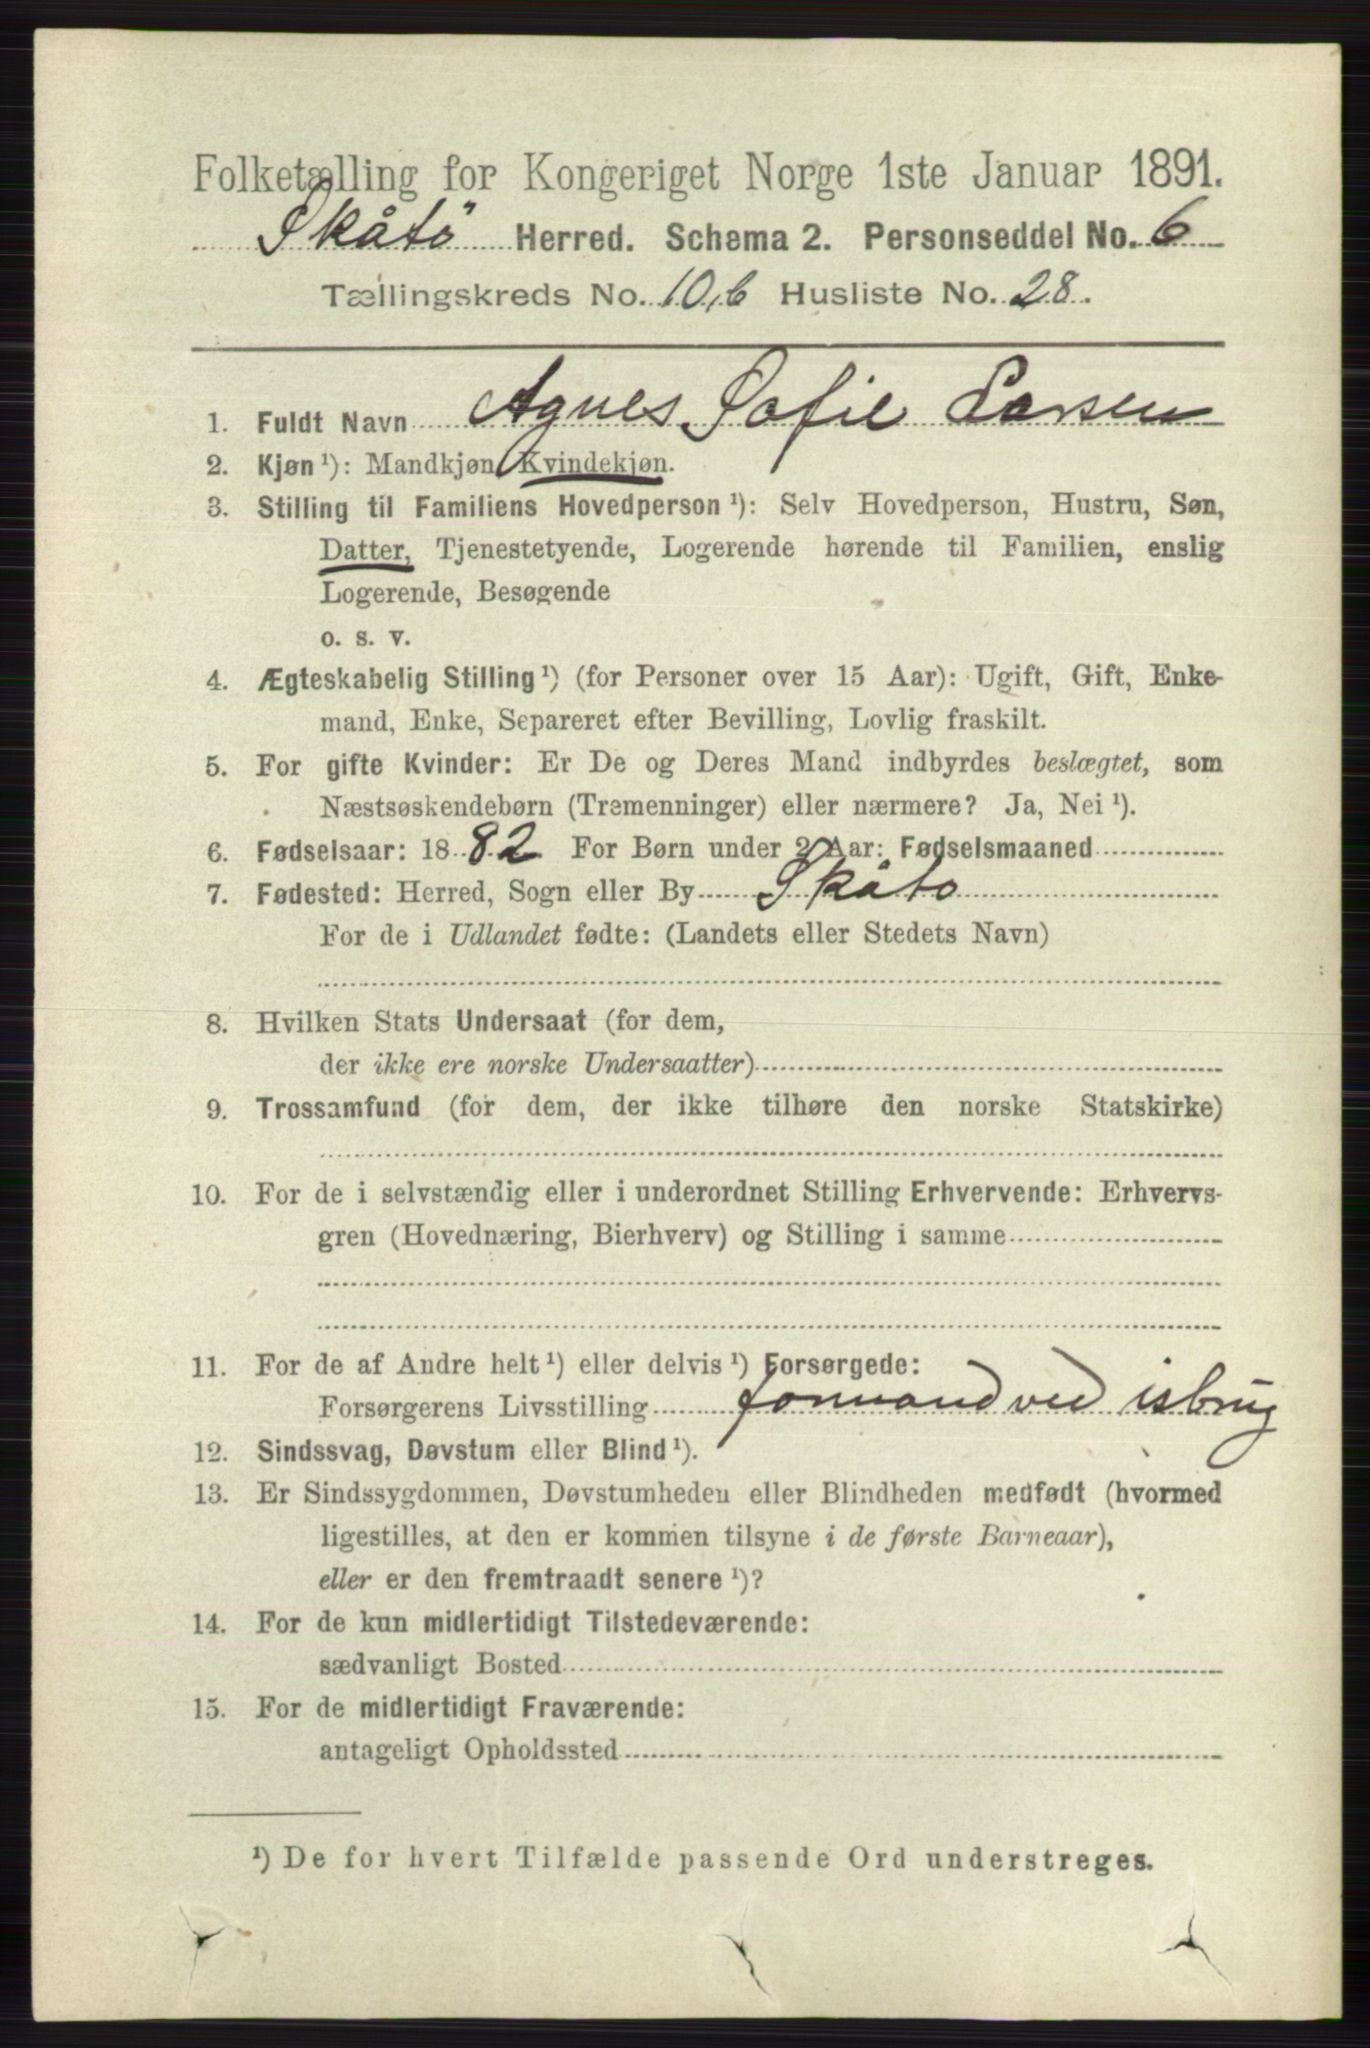 Folketælling for Kongeriget Norge 1ste Januar 1891.
Skåtö Herred. Schema 2. Personseddel No. 6
Tællingskreds No. 10,6 Husliste No. 28.
1. Fuldt Navn Agnes Sofie Larsen
2. Kjøn ¹): Mandkjøn, Kvindekjøn.
3. Stilling til Familiens Hovedperson ¹): Selv Hovedperson, Hustru, Søn,
Datter, Tjenestetyende, Logerende hørende til Familien, enslig
Logerende, Besøgende
o. s. v.
4. Ægteskabelig Stilling ¹) (for Personer over 15 Aar): Ugift, Gift, Enke-
mand, Enke, Separeret efter Bevilling, Lovlig fraskilt.
5. For gifte Kvinder: Er De og Deres Mand indbyrdes beslægtet, som
Næstsøskendebørn (Tremenninger) eller nærmere? Ja, Nei ¹).
6. Fødselsaar: 1882 For Børn under 2 Aar: Fødselsmaaned
7. Fødested: Herred, Sogn eller By Skåtö
For de i Udlandet fødte: (Landets eller Stedets Navn)
8. Hvilken Stats Undersaat (for dem,
der ikke ere norske Undersaatter)
9. Trossamfund (for dem, der ikke tilhøre den norske Statskirke)
10. For de i selvstændig eller i underordnet Stilling Erhvervende: Erhvervs-
gren (Hovednæring, Bierhverv) og Stilling i samme
11. For de af Andre helt ¹) eller delvis ¹) Forsørgede:
Forsørgerens Livsstilling formand ved isbrug
12. Sindssvag, Døvstum eller Blind ¹).
13. Er Sindssygdommen, Døvstumheden eller Blindheden medfødt (hvormed
ligestilles, at den er kommen tilsyne i de første Barneaar),
eller er den fremtraadt senere ¹)?
14. For de kun midlertidigt Tilstedeværende:
sædvanligt Bosted
15. For de midlertidigt Fraværende:
antageligt Opholdssted
¹) De for hvert Tilfælde passende Ord understreges.